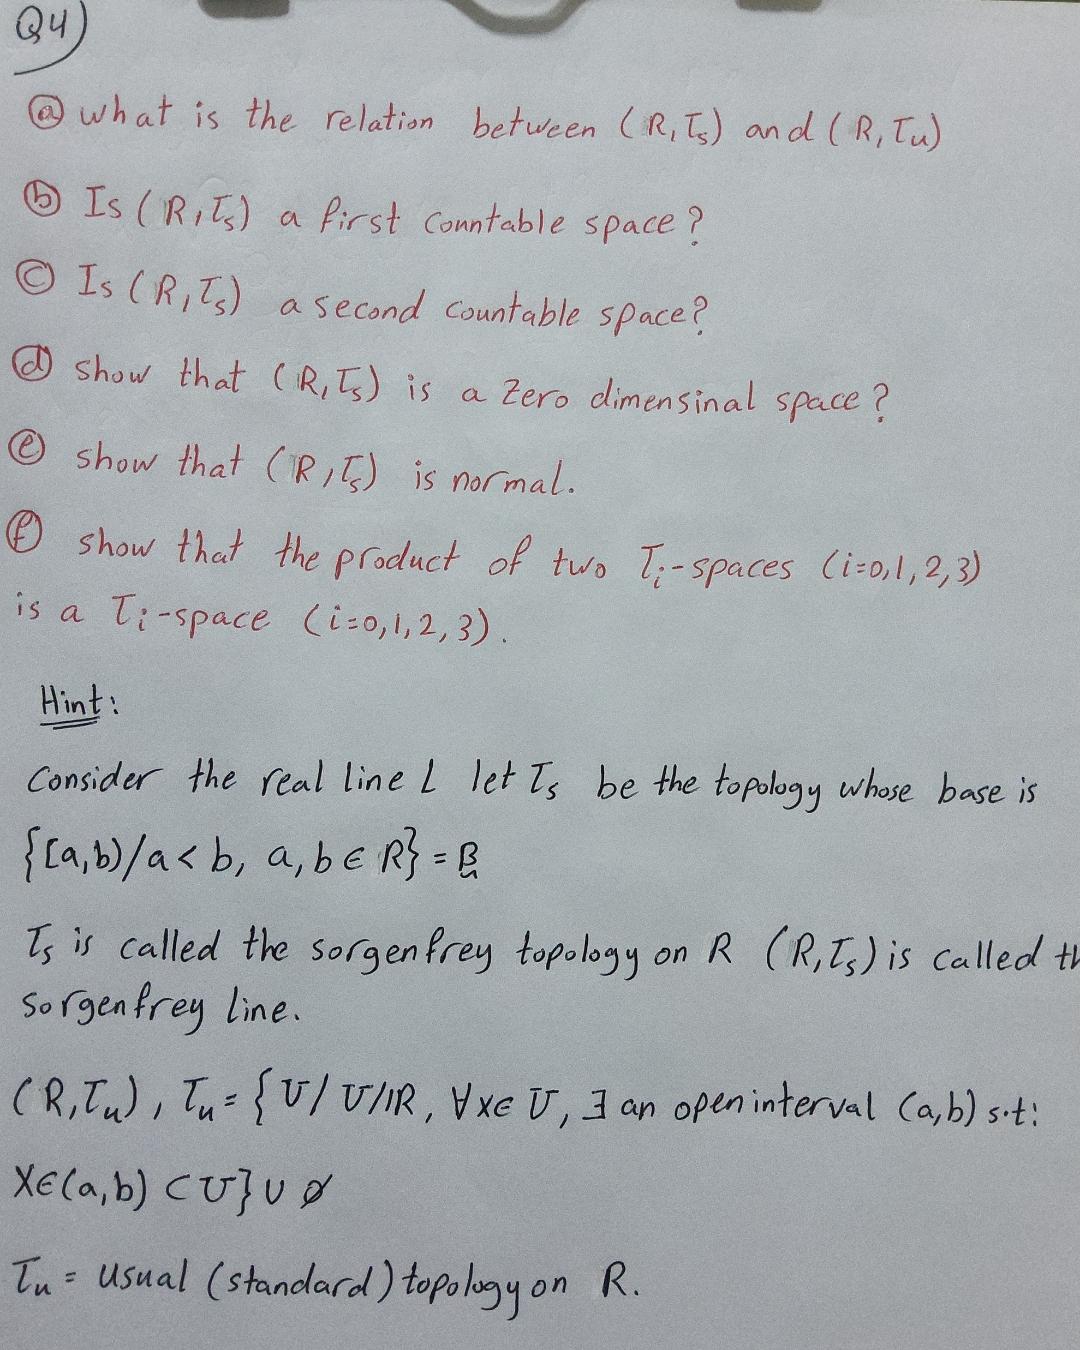 Q4)
ⓐ what is the relation between (R,Ts) and (R,Tu)
ⓑ Is (R,Ts) a first countable space?
ⓒ Is (R,Ts) a second countable space?
ⓓ show that (R,Ts) is a Zero dimensinal space?
ⓔ show that (R,Ts) is normal.
ⓕ show that the product of two Ti-spaces (i=0,1,2,3)
is a Ti-space (i=0,1,2,3).
Hint:
Consider the real line L let Ts be the topology whose base is
{[a,b)/a<b, a,b∈R}=B
Ts is called the sorgenfrey topology on R (R,Ts) is called th
sorgenfrey line.
(R,Tu), Tu={U/U/R, ∀x∈U, ∃ an open interval (a,b) s.t:
X∈(a,b)⊂U}∪∅
Tu = usual (standard) topology on R.